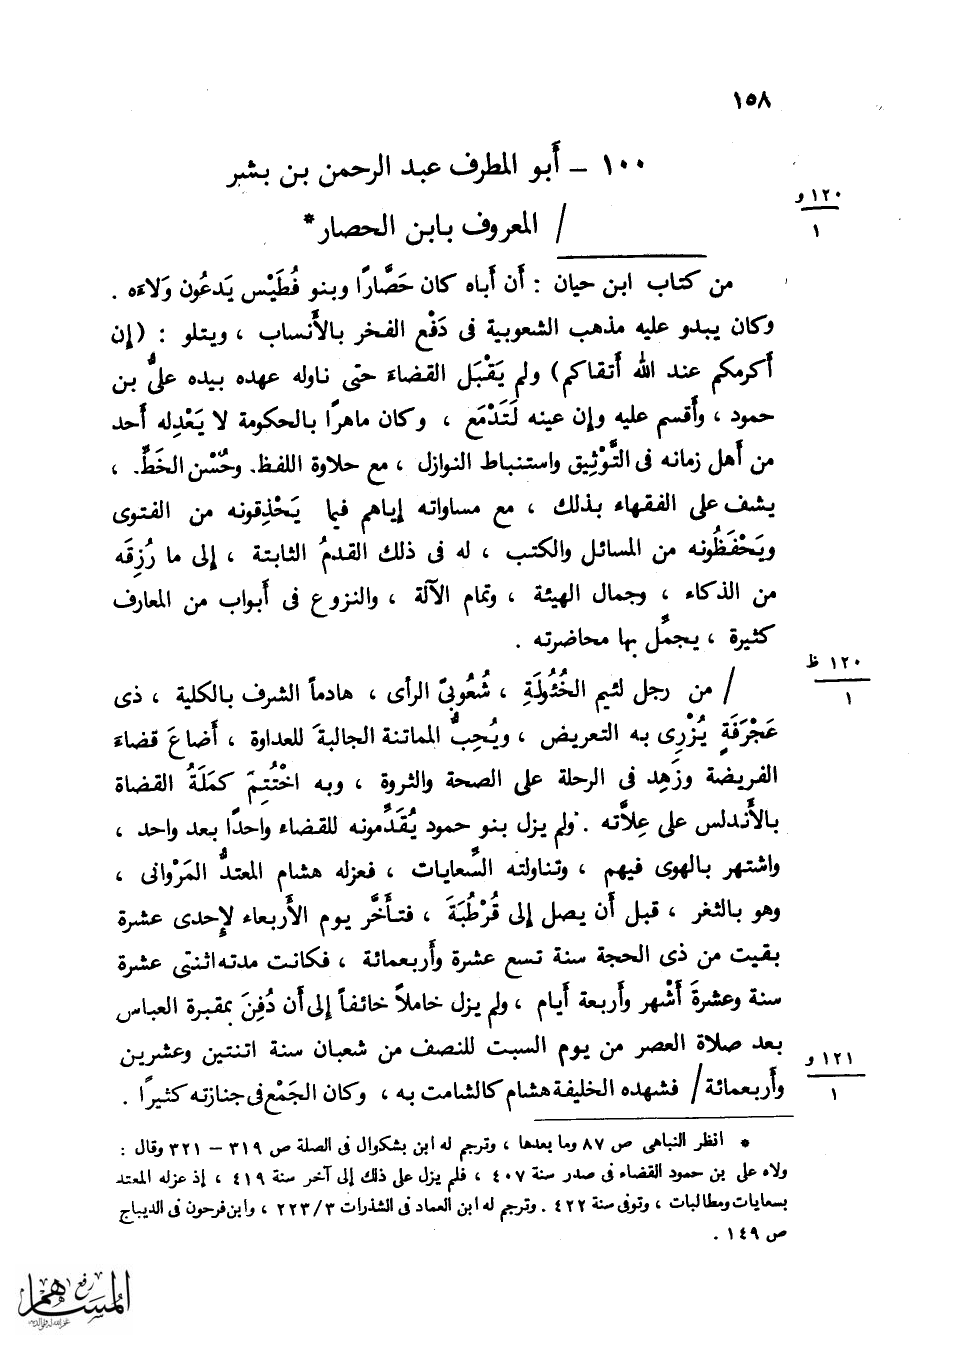 ١٥٨
١٠٠ – أبو المطرف عبد الرحمن بن بشر
١٢٠ و
/ المعروف بابن الحصار *
١
من كتاب ابن حيان : أن أباه كان حَصَّارًا وبنو فُطَيْس يَدعُون وَلاءَه .
وكان يبدو عليه مذهب الشعوبية فى دَفْع الفخر بالأَنساب ، ويتلو : (إن
أكرمكم عند الله أتقاكم) ولم يَقْبَل القضاءَ حتى ناوله عهده بيده علىُّ بن
حمود ، وأَقسم عليه وإن عينه لَتَدْمَع ، وكان ماهرًا بالحكومة لا يَعْدِله أحد
من أهل زمانه فى التَّوْثِيق واستنباط النوازل ، مع حلاوة اللفظ. وحُسْن الخَطِّ. ،
يشف على الفقهاء بذلك ، مع مساواته إياهم فيما يَحْذِقونه من الفتوى
ويَحْفَظُونه من المسائل والكتب ، له فى ذلك القدمُ الثابتة ، إلى ما رُزِقَه
من الذكاء ، وجمال الهيئة ، وتمام الآلة ، والنزوع فى أبواب من المعارف
كثيرة ، يجمِّل بها محاضرته .
١٢٠ ظ
/ من رجل لئيم الخُئُولَةِ ، شُعُوبىّ الرأى ، هادماً الشرف بالكلية ، ذى
١
عَجْرَفَةٍ يُزْرِى به التعريض ، ويُحِبُّ المماتنة الجالبةَ للعداوة ، أضاعَ قضاءَ
الفريضة وزَهِد فى الرحلة على الصحة والثروة ، وبه اخْتُتِمَ كمَلَةُ القضاة
بالأَندلس على عِلاَّته . ولم يزل بنو حمود يُقَدِّمونه للقضاء واحدًا بعد واحد ،
واشتهر بالهوى فيهم ، وتناولته السِّعايات ، فعزله هشام المعتدُّ المَرْوانى ،
وهو بالثغر ، قبل أن يصل إلى قُرْطُبَةَ ، فتأَخَّر يوم الأَربعاء لإحدى عشرة
بقيت من ذى الحجة سنة تسع عشرة وأربعمائة ، فكانت مدته اثنتى عشرة
سنة وعشرةَ أَشْهر وأَربعة أَيام ، ولم يزل خاملاً خائفاً إلى أن دُفِنَ بمقبرة العباس
بعد صلاة العصر من يوم السبت للنصف من شعبان سنة اثنتين وعشرين
١٢١ و
وأَربعمائة / فشهده الخليفة هشام كالشامت به ، وكان الجَمْع فى جنازته كثيرًا .
١
* انظر النباهى ص ٨٧ وما بعدها ، وترجم له ابن بشكوال فى الصلة ص ٣١٩ – ٣٢١ وقال :
ولاه على بن حمود القضاء فى صدر سنة ٤٠٧ ، فلم يزل على ذلك إلى آخر سنة ٤١٩ ، إذ عزله المعتد
بسعايات ومطالبات ، وتوفى سنة ٤٢٢ . وترجم له ابن العماد فى الشذرات ٢٢٣/٣ ، وابن فرحون فى الديباج
ص ١٤٩ .
رفع
المساهم